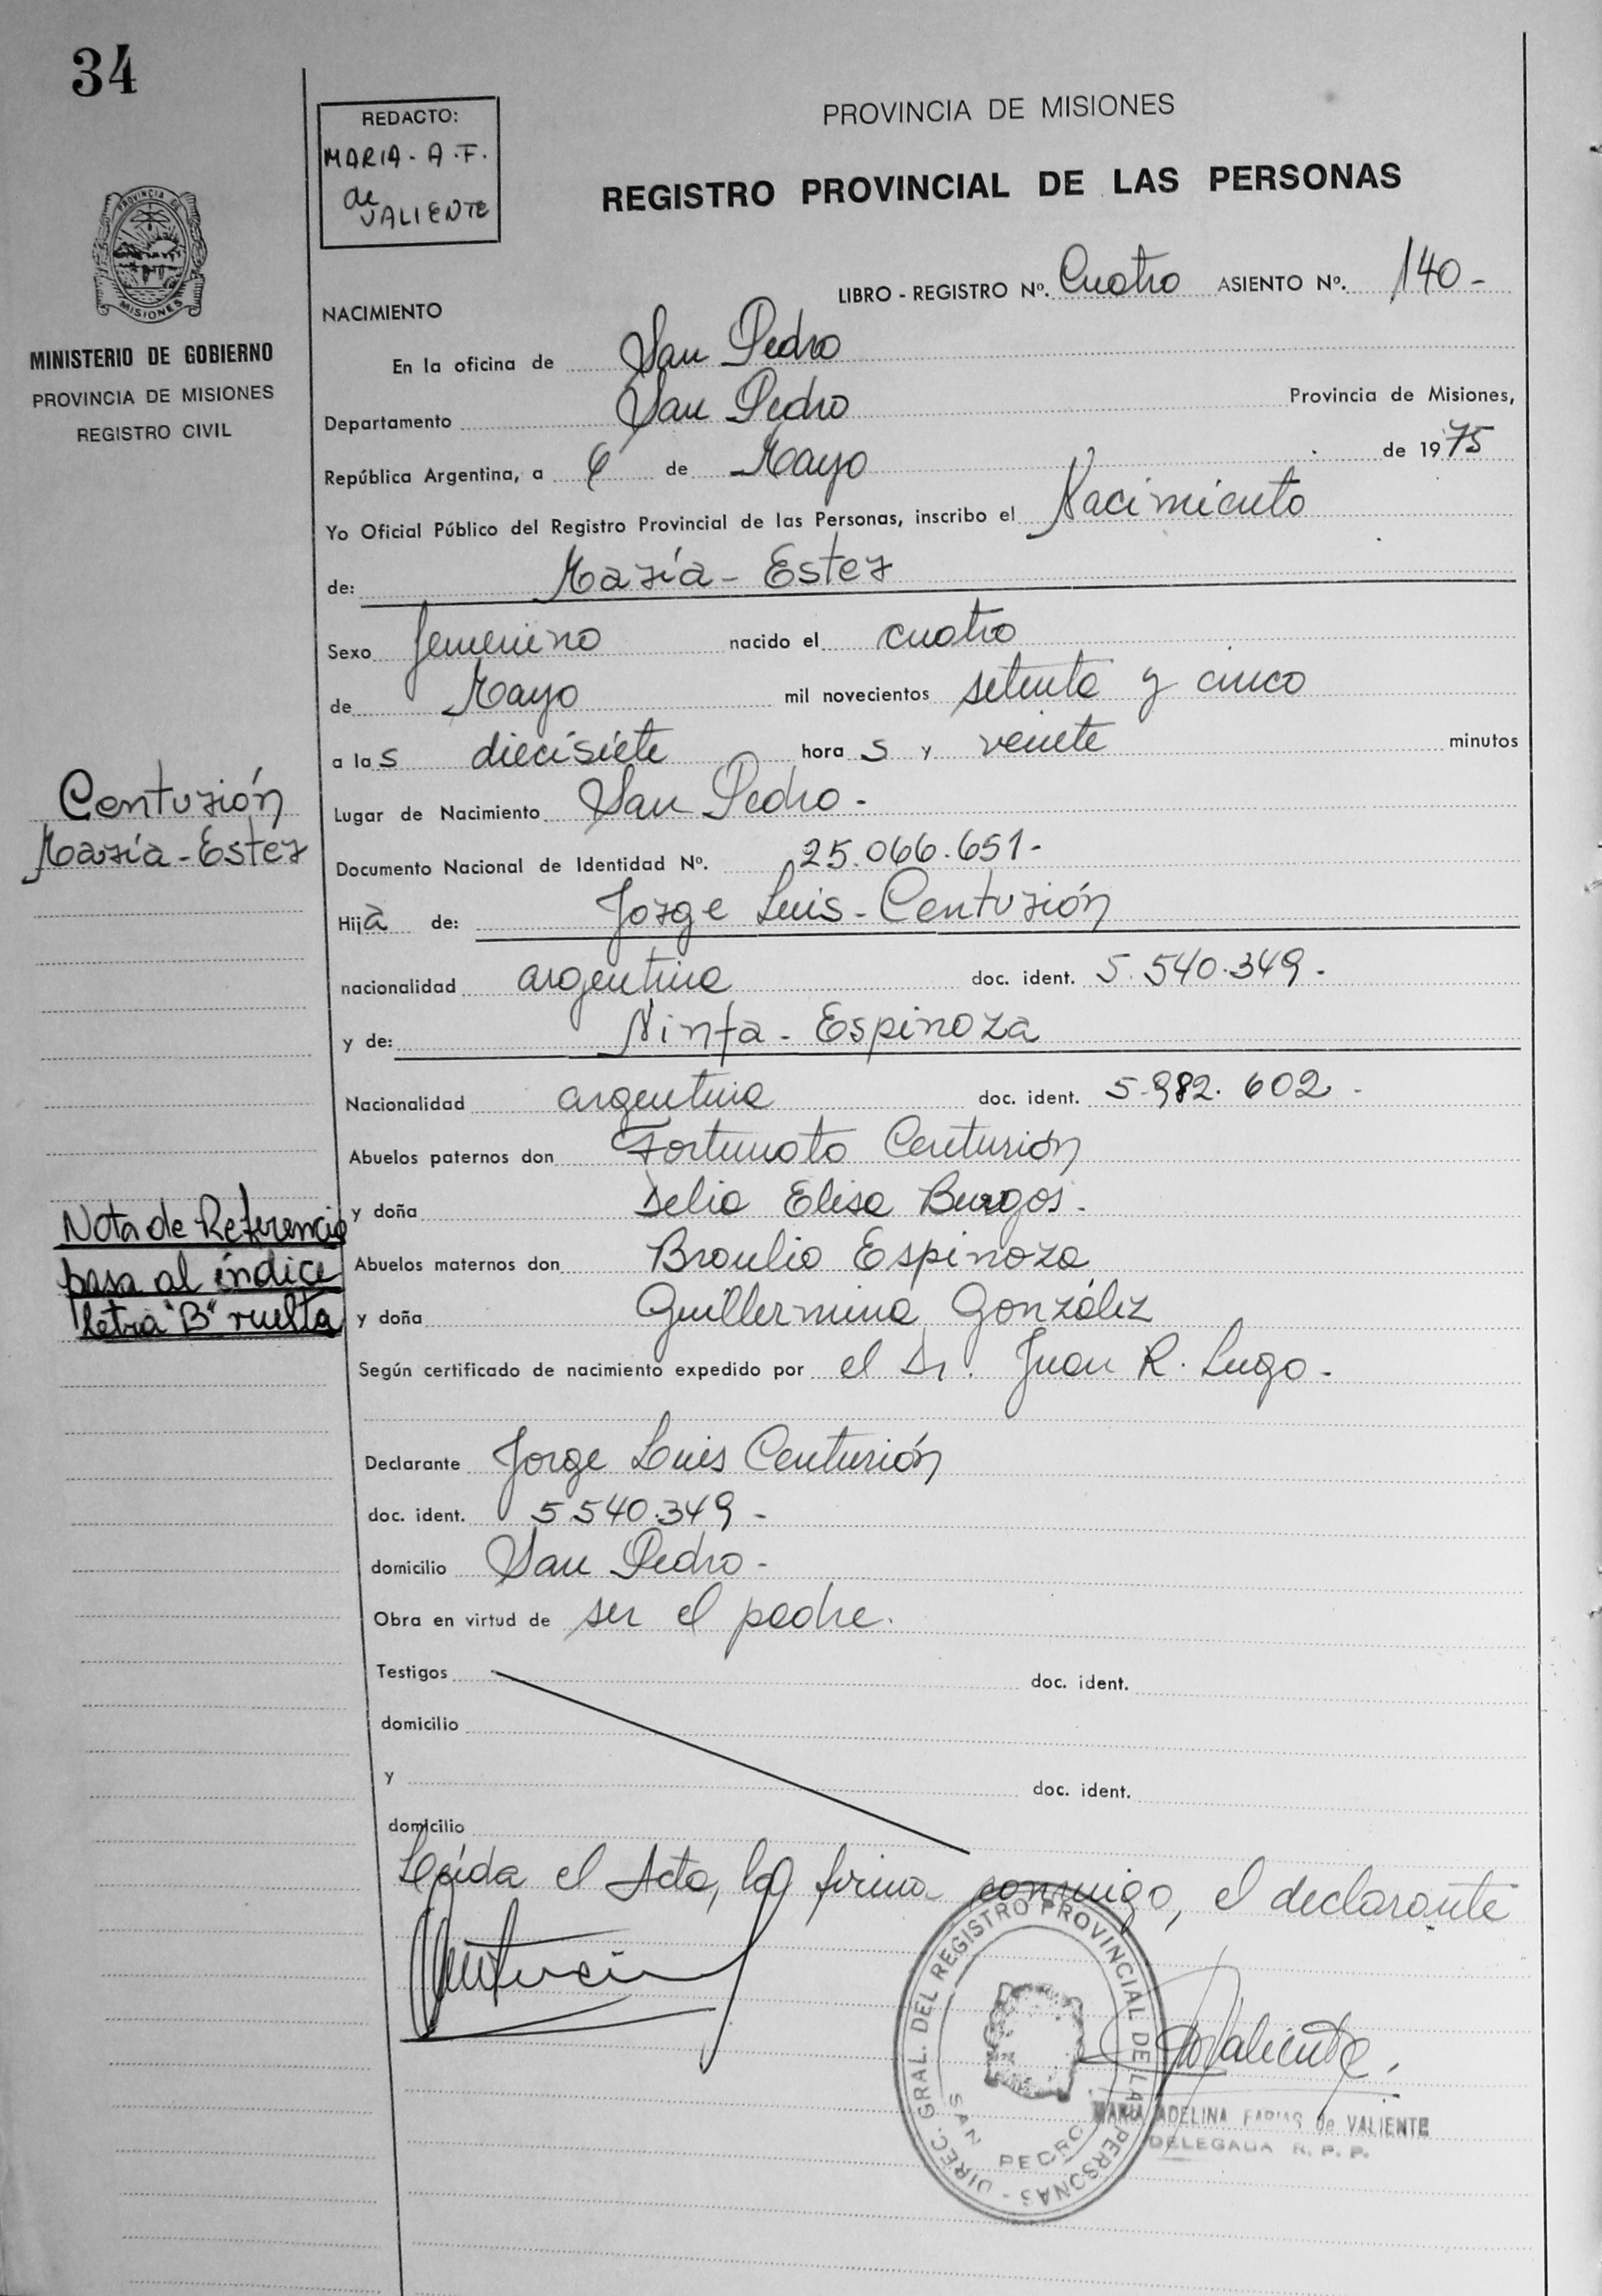 34
REDACTO:
MARIA - A.F.
de
VALIENTE
PROVINCIA DE MISIONES
REGISTRO PROVINCIAL DE LAS PERSONAS
PROVINCIA DE
MISIONES
MINISTERIO DE GOBIERNO
PROVINCIA DE MISIONES
REGISTRO CIVIL
LIBRO - REGISTRO Nº. Cuatro ASIENTO Nº. 140 -
NACIMIENTO
En la oficina de San Pedro
Departamento San Pedro Provincia de Misiones,
República Argentina, a de Mayo de 1975
Yo Oficial Público del Registro Provincial de las Personas, inscribo el Nacimiento
de: María - Ester
Sexo femenino nacido el cuatro
de Mayo mil novecientos setenta y cinco
a las diecisiete horas y veinte minutos
Lugar de Nacimiento San Pedro -
Centurión
María - Ester
Documento Nacional de Identidad Nº. 25.066.651 -
Hija de: Jorge Luis - Centurión
nacionalidad argentina doc. ident. 5.540.349 -
y de: Ninfa - Espinoza
Nacionalidad argentina doc. ident. 5.982.602 -
Abuelos paternos don Fortunato Centurión
y doña Delia Elisa Burgos -
Abuelos maternos don Braulio Espinoza
y doña Guillermina González
Nota de Referencia
pasa al índice
letra "B" vuelta
Según certificado de nacimiento expedido por el Dr. Juan R. Lugo -
Declarante Jorge Luis Centurión
doc. ident. 5.540.349 -
domicilio San Pedro -
Obra en virtud de ser el padre.
Testigos doc. ident.
domicilio
y doc. ident.
domicilio
Leída el Acta, la firma conmigo, el declarante
DIREC. GRAL. DEL REGISTRO PROVINCIAL DE LAS PERSONAS -
SAN PEDRO
MARIA ADELINA FARIAS de VALIENTE
DELEGADA R. P. P.